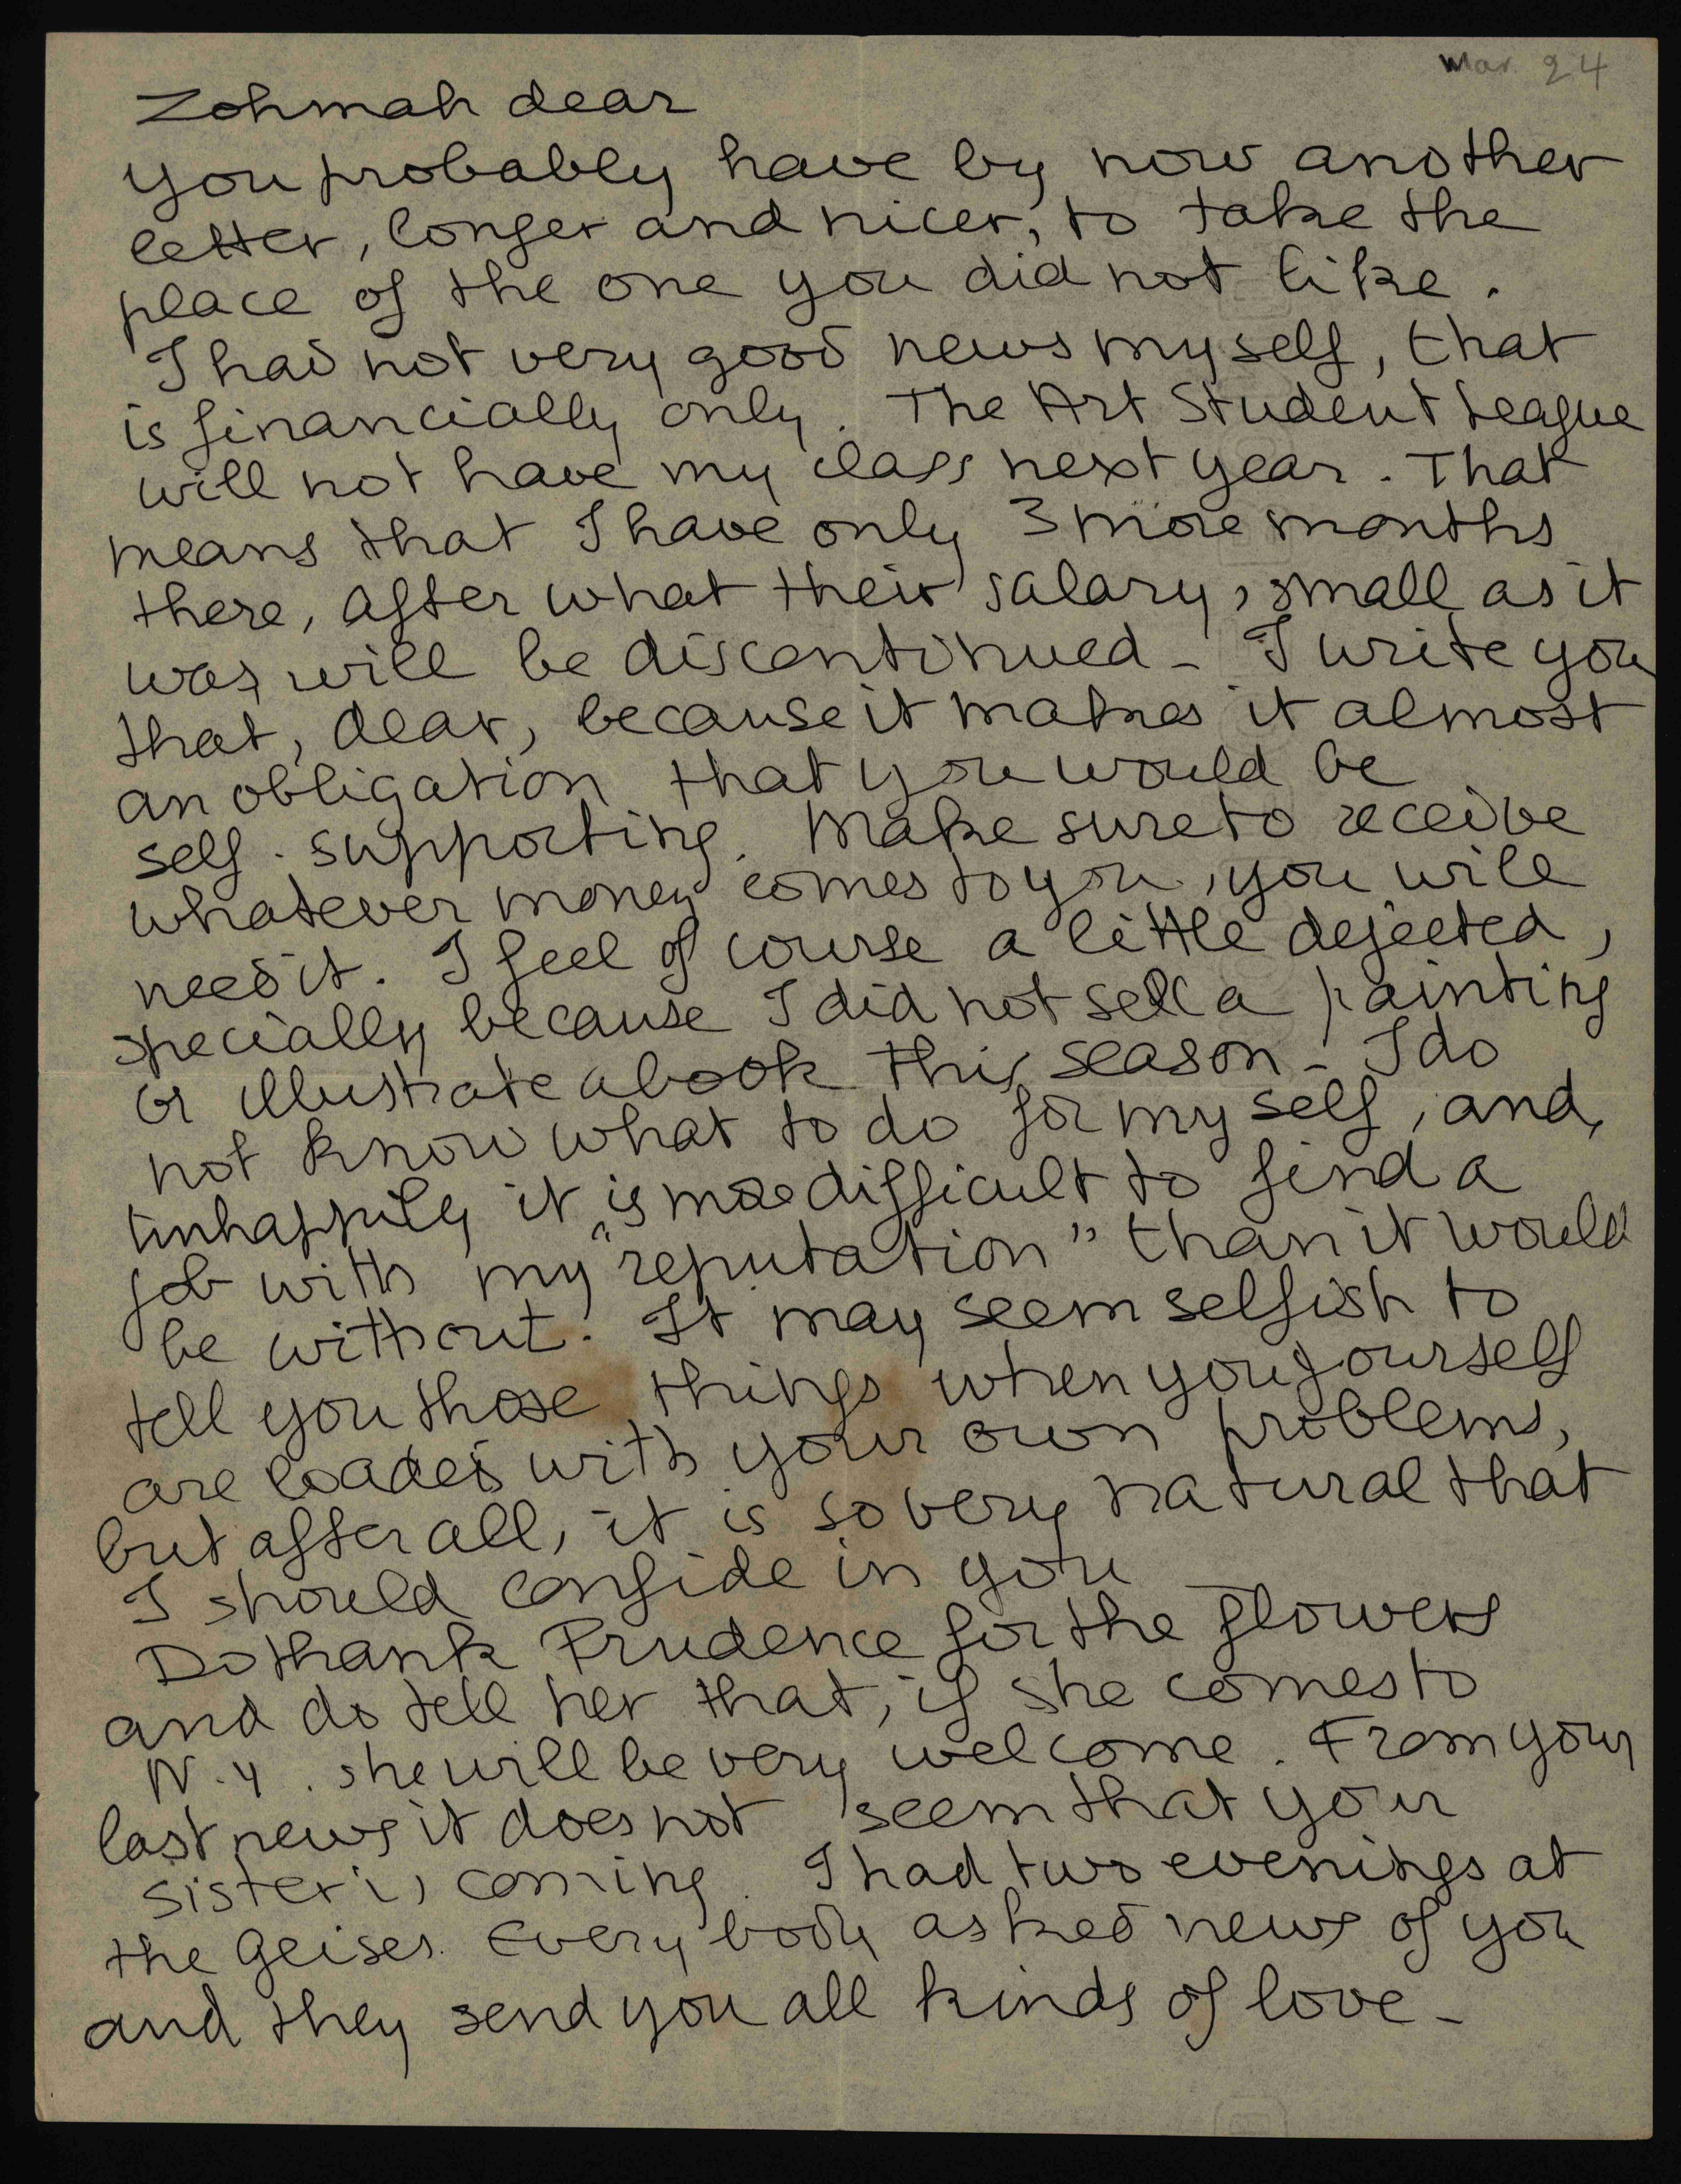 Mar. 24
Zohmah dear
you probably have by now another
letter, longer and nicer, to take the
place of the one you did not like.
I had not very good news myself, that
is financially only. The Art Student League
will not have my class next year. That
means that I have only 3 more months
there, after what their salary, small as it
was, will be discontinued - I write you
that, dear, because it makes it almost
an obligation that you would be
self-supporting. Make sure to receive
whatever money comes to you, you will
need it. I feel of course a little dejected,
specially because I did not sell a painting
or illustrate a book this season - I do
not know what to do for myself, and,
unhappily it is more difficult to find a
job with my "reputation" than it would
be without. It may seem selfish to
tell you those things when you yourself
are loaded with your own problems,
but after all, it is so very natural that
I should confide in you
Do thank Prudence for the flowers
and do tell her that, if she comes to
N.Y. she will be very welcome. From your
last news it does not seem that your
sister is coming. I had two evenings at
the Geises. Everybody asked news of you
and they send you all kinds of love -